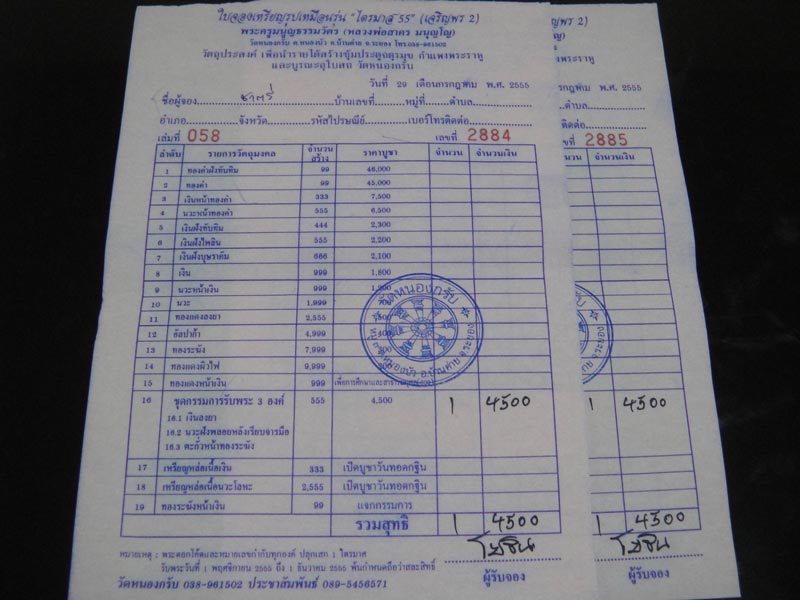 ใบจองเหรียญรูปเหมือนรุ่น "ไตรมาส 55" (เจริญพร 2)
พระครูมนูญธรรมวัตร (หลวงพ่อสาคร มนุญโญ)
วัดหนองกรับ ต.หนองบัว อ.บ้านค่าย จ.ระยอง โทร.038-961502
วัตถุประสงค์ เพื่อนำรายได้สร้างซุ้มประตูจตุรมุข กำแพงพระราหู
และบูรณะอุโบสถ วัดหนองกรับ
วันที่ 29 เดือนกรกฎาคม พ.ศ. 2555
ชื่อผู้จอง ชาตรี บ้านเลขที่ หมู่ที่ ตำบล
อำเภอ จังหวัด รหัสไปรษณีย์ เบอร์โทรติดต่อ
เล่มที่ 058 เลขที่ 2884
ลำดับ รายการวัตถุมงคล จำนวนสร้าง ราคาบูชา จำนวน จำนวนเงิน
1 ทองคำฝังทับทิม 99 46,000
2 ทองคำ 99 45,000
3 เงินหน้าทองคำ 333 7,500
4 นวะหน้าทองคำ 555 6,500
5 เงินฝังทับทิม 444 2,300
6 เงินฝังไพลิน 555 2,200
7 เงินฝังบุษราคัม 666 2,100
8 เงิน 999 1,800
9 นวะหน้าเงิน 999
10 นวะ 1,999
11 ทองแดงลงยา 2,555
12 อัลปาก้า 4,999
13 ทองระฆัง 7,999
14 ทองแดงผิวไฟ 9,999
15 ทองแดงหน้าเงิน 999
16 ชุดกรรมการรับพระ 3 องค์ 555 4,500 1 4500
16.1 เงินลงยา
16.2 นวะฝังพลอยหลังเรียบจารมือ
16.3 ตะกั่วหน้าทองระฆัง
17 เหรียญหล่อเนื้อเงิน 333 เปิดบูชาวันทอดกฐิน
18 เหรียญหล่อเนื้อนวะโลหะ 2,555 เปิดบูชาวันทอดกฐิน
19 ทองระฆังหน้าเงิน 99 แจกกรรมการ
รวมสุทธิ 1 4500
โยธิน
ผู้รับจอง
หมายเหตุ : พระตอกโค๊ตและหมายเลขกำกับทุกองค์ ปลุกเสก 1 ไตรมาศ
รับพระวันที่ 1 พฤศจิกายน 2555 ถึง 1 ธันวาคม 2555 พ้นกำหนดถือว่าสละสิทธิ์
วัดหนองกรับ 038-961502 ประชาสัมพันธ์ 089-5456571
วัดหนองกรับ
ต.หนองบัว อ.บ้านค่าย จ.ระยอง
เจริญพร 2)
มนุญโญ)
กำแพงพระราหู
พ.ศ. 2555
ตำบล
ติดต่อ
2885
จำนวน จำนวนเงิน
1 4500
1 4500
โยธิน
ผู้รับจอง